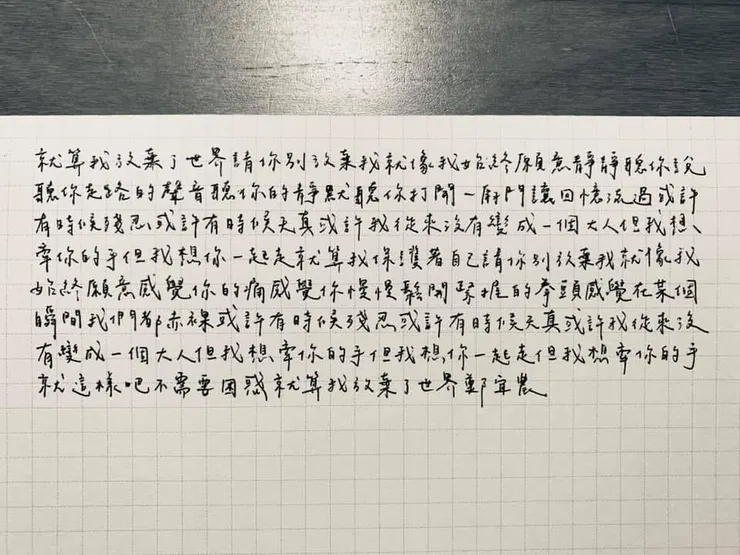 就算我放棄了世界請你別放棄我就像我始終願意靜靜聽你說
聽你走路的聲音聽你的靜默聽你打開一扇門讓回憶流過或許
有時候殘忍或許有時候天真或許我從來沒有變成一個大人但我想
牽你的手但我想你一起走就算我保護著自己請你別放棄我就像我
始終願意感覺你的痛感覺你慢慢鬆開緊握的拳頭感覺在某個
瞬間我們都赤裸或許有時候殘忍或許有時候天真或許我從來沒
有變成一個大人但我想牽你的手但我想你一起走但我想牽你的手
就這樣吧不需要困惑就算我放棄了世界鄭宜農